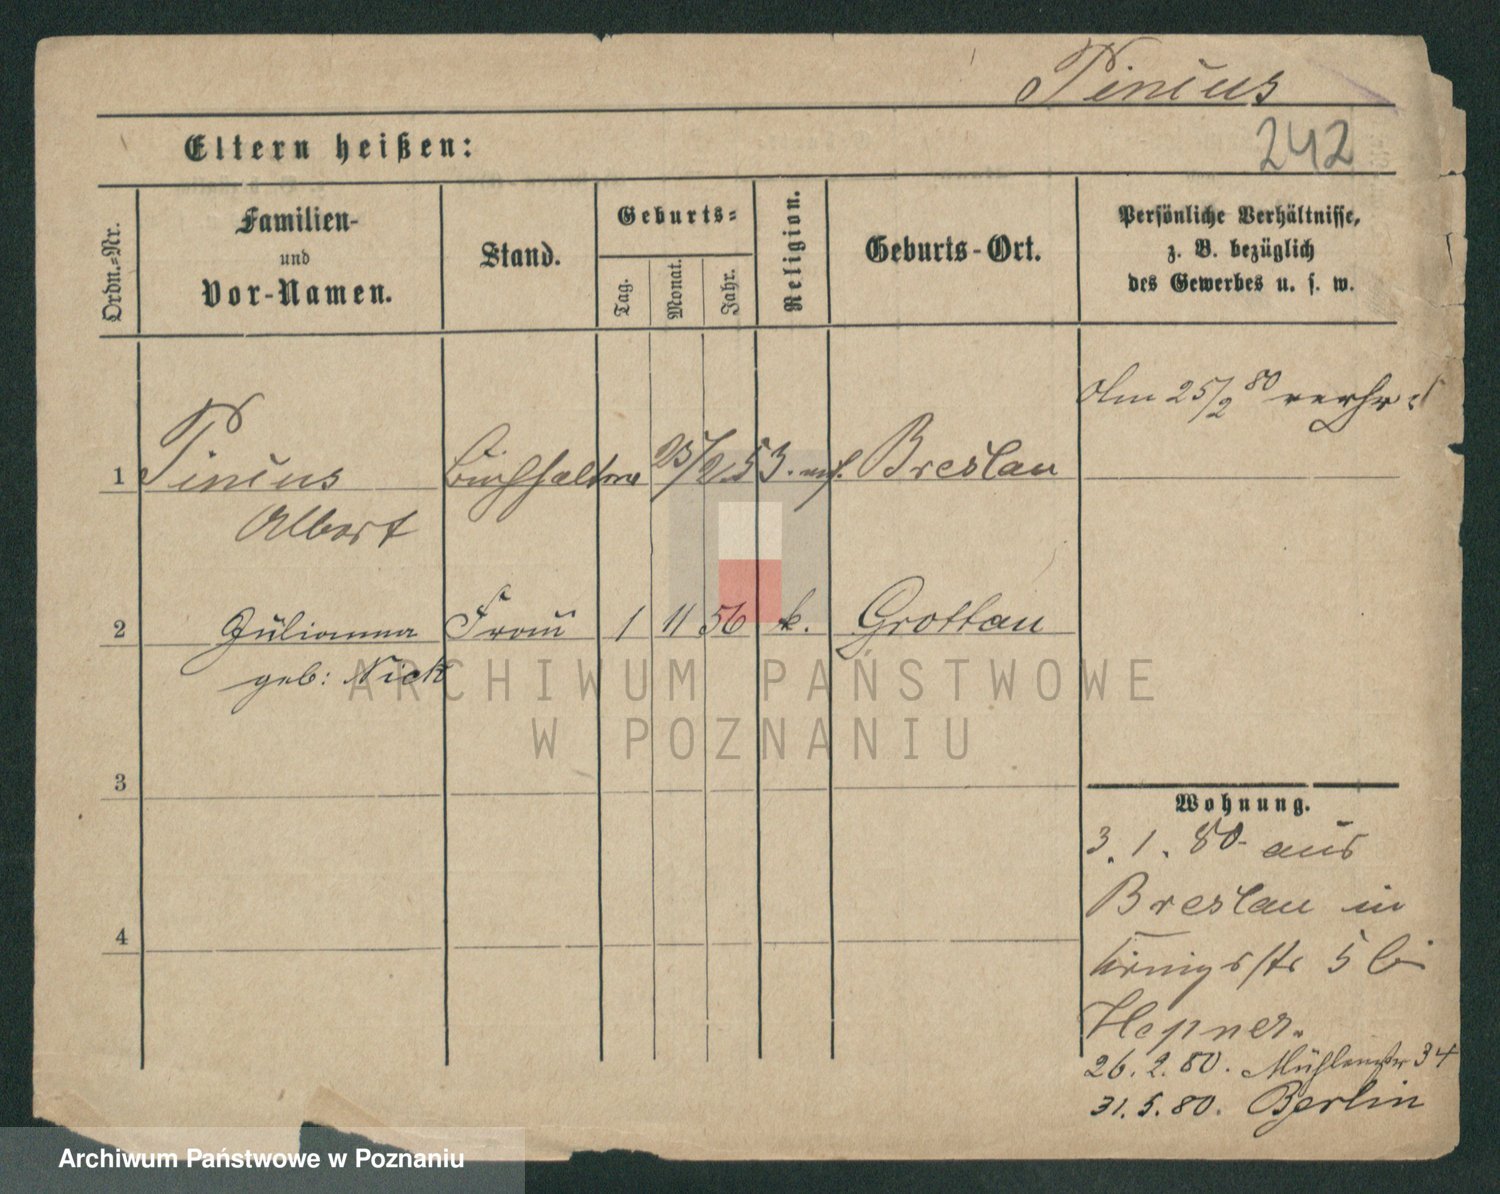 Pincus
242
Eltern heißen:
Ordn.-Nr.
Familien-
und
Vor-Namen.
Stand.
Geburts-
Tag.
Monat.
Jahr.
Religion.
Geburts-Ort.
Persönliche Verhältnisse,
z. B. bezüglich
des Gewerbes u. s. w.
Am 25/2 80
1 Pincus Buchhalter 25/2 53. mos. Breslau
Albert
2 Julianna Frau 1 11 56 k. Grottau
geb: Nick
3
4
Wohnung.
3.1.80 aus
Breslau in
Königstr 5 bei
Hepner.
26.2.80. Mühlenstr 34
31.5.80. Berlin
ARCHIWUM PAŃSTWOWE
W POZNANIU
Archiwum Państwowe w Poznaniu